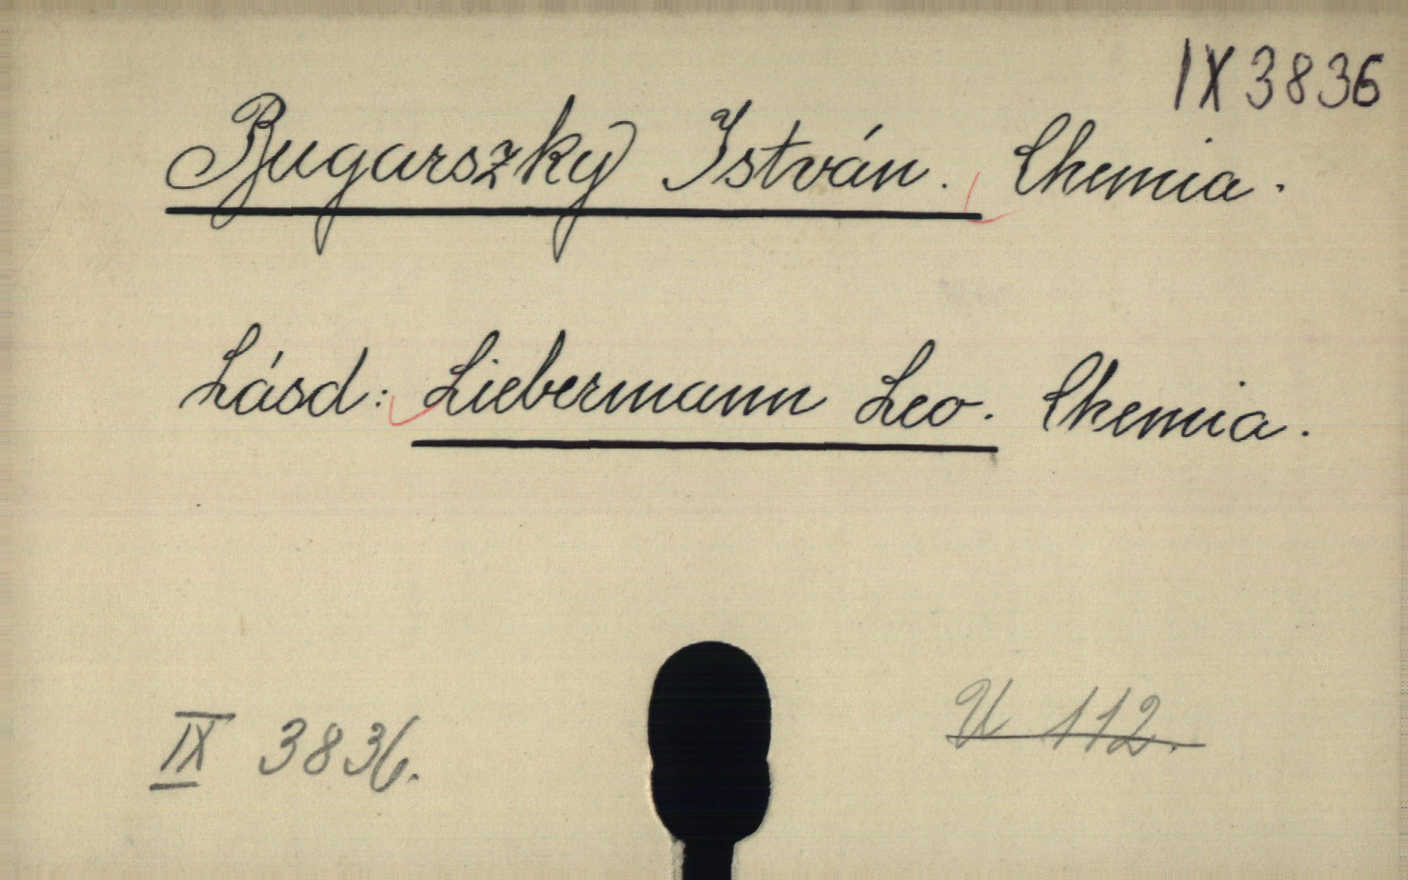 IX 3836
Bugarszky István. Chemia.
Lásd: Liebermann Leo. Chemia.
IX 3836.
U 112.